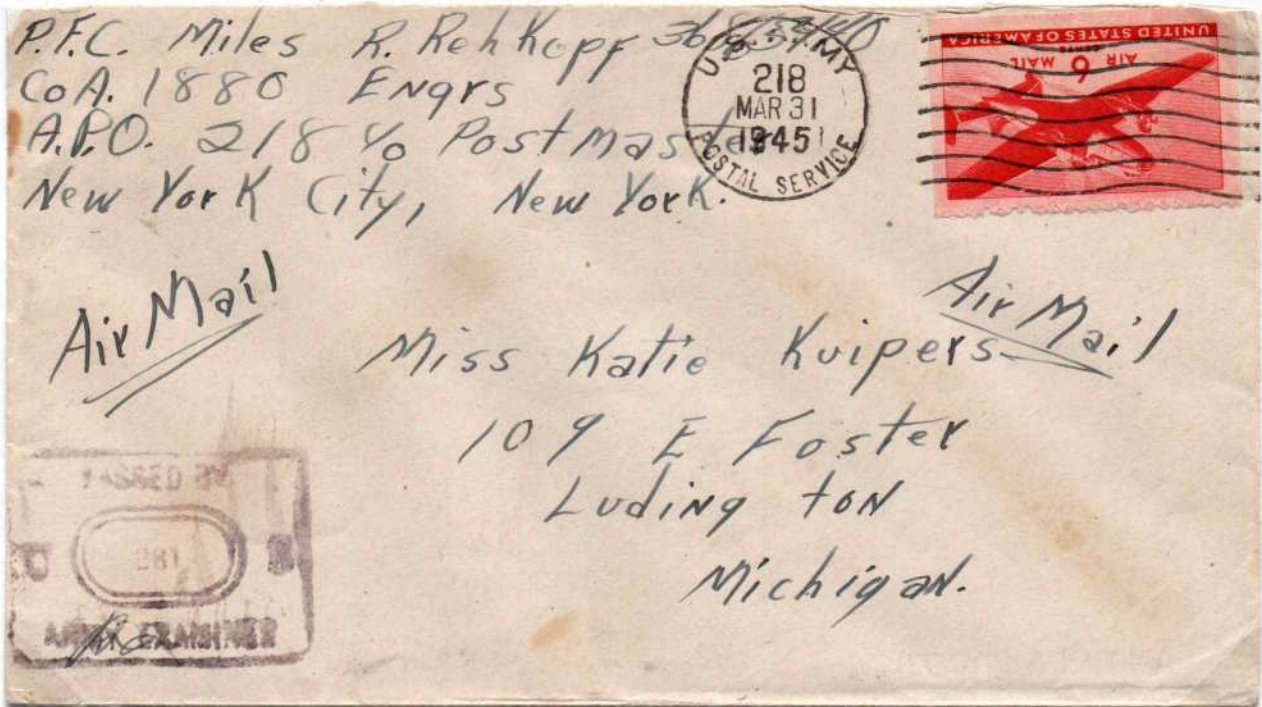 P.F.C. Miles R. Rehkopf
Co A. 1880 Engrs
A.P.O. 218 c/o Postmaster
New York City, New York.
U.S. ARMY
218
MAR 31
1945
POSTAL SERVICE
UNITED STATES OF AMERICA
CENTS
6
AIR MAIL
Air Mail
Air Mail
Miss Katie Kuipers
109 E Foster
Ludington
Michigan.
PASSED BY
281
ARMY EXAMINER